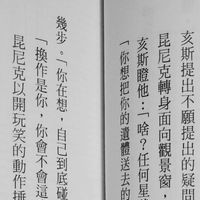 亥斯提出不願提出的疑問
昆尼克轉身面向觀景窗，
亥斯瞪他：「啥？任何星
「你想把你的遺體送去的
幾步。「你在想，自己到底碰
「換作是你，你會不會這
昆尼克以開玩笑的動作捶